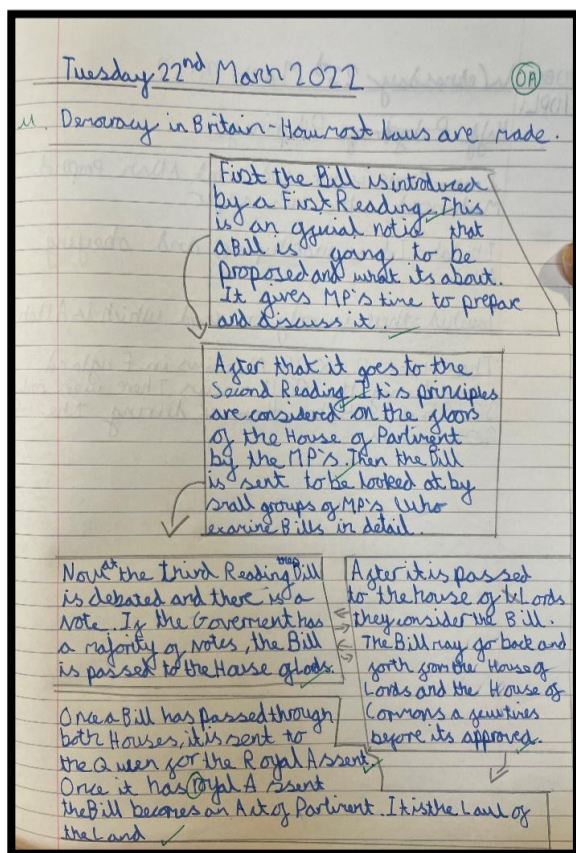 Tuesday 22nd March 2022
OA
LI. Democracy in Britain - How most laws are made.
First the Bill is introduced
by a First Reading. This
is an official notice that
a Bill is going to be
proposed and what its about.
It gives MP's time to prepare
and discuss it.
After that it goes to the
Second Reading. It's principles
are considered on the floors
of the House of Parliment
by the MP's. Then the Bill
is sent to be looked at by
small groups of MP's who
examine Bills in detail.
Now at the third Reading the Bill
is debated and there is a
vote. If the Goverment has
a majority of votes, the Bill
is passed to the House of Lods.
After it is passed
to the house of the Lords
they consider the Bill.
The Bill may go back and
forth from the House of
Lords and the House of
Commons a few times
before its approved.
Once a Bill has passed through
both Houses, it is sent to
the Queen for the Royal Assent.
Once it has royal Assent
the Bill becomes an Act of Parliment. It is the Law of
the Land